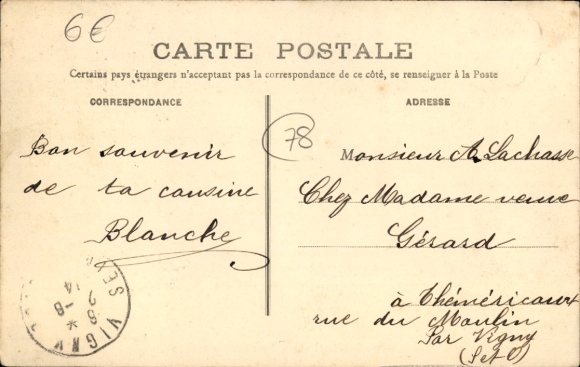 6€
CARTE POSTALE
Certains pays étrangers n'acceptant pas la correspondance de ce côté, se renseigner à la Poste
CORRESPONDANCE
ADRESSE
78
Bon souvenir
de ta cousine
Blanche
Monsieur A. Lachasse
Chez Madame veuve
Gérard
à Théméricourt
rue du Moulin
Par Vigny
(S et O)
VIGNY
28 -8
14